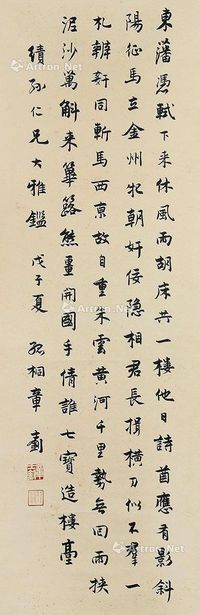 東藩憑軾下來休風雨胡床共一樓他日詩酋應有影斜
陽征馬立金州犯朝奸佞隐相君長揖橫刀似不羣一
札辨奸同斬馬西京故自重朱雲黃河千里勢無回西挾
泥沙萬斛来篳路熊畺開國手倩誰七寶造樓臺
績孫仁兄大雅鑑 戊子夏 孤桐章士釗